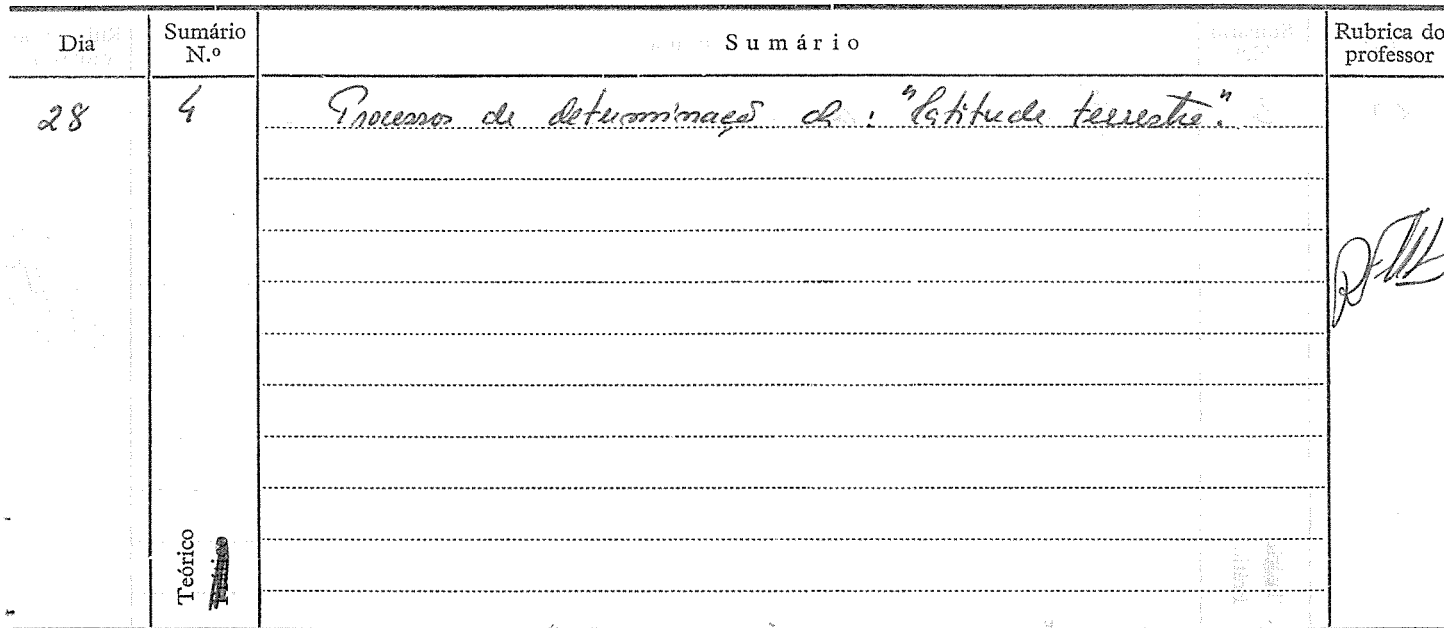 Dia Sumário N.º Sumário Rubrica do professor
28 4 Processos de determinação da: "latitude terrestre".
Teórico